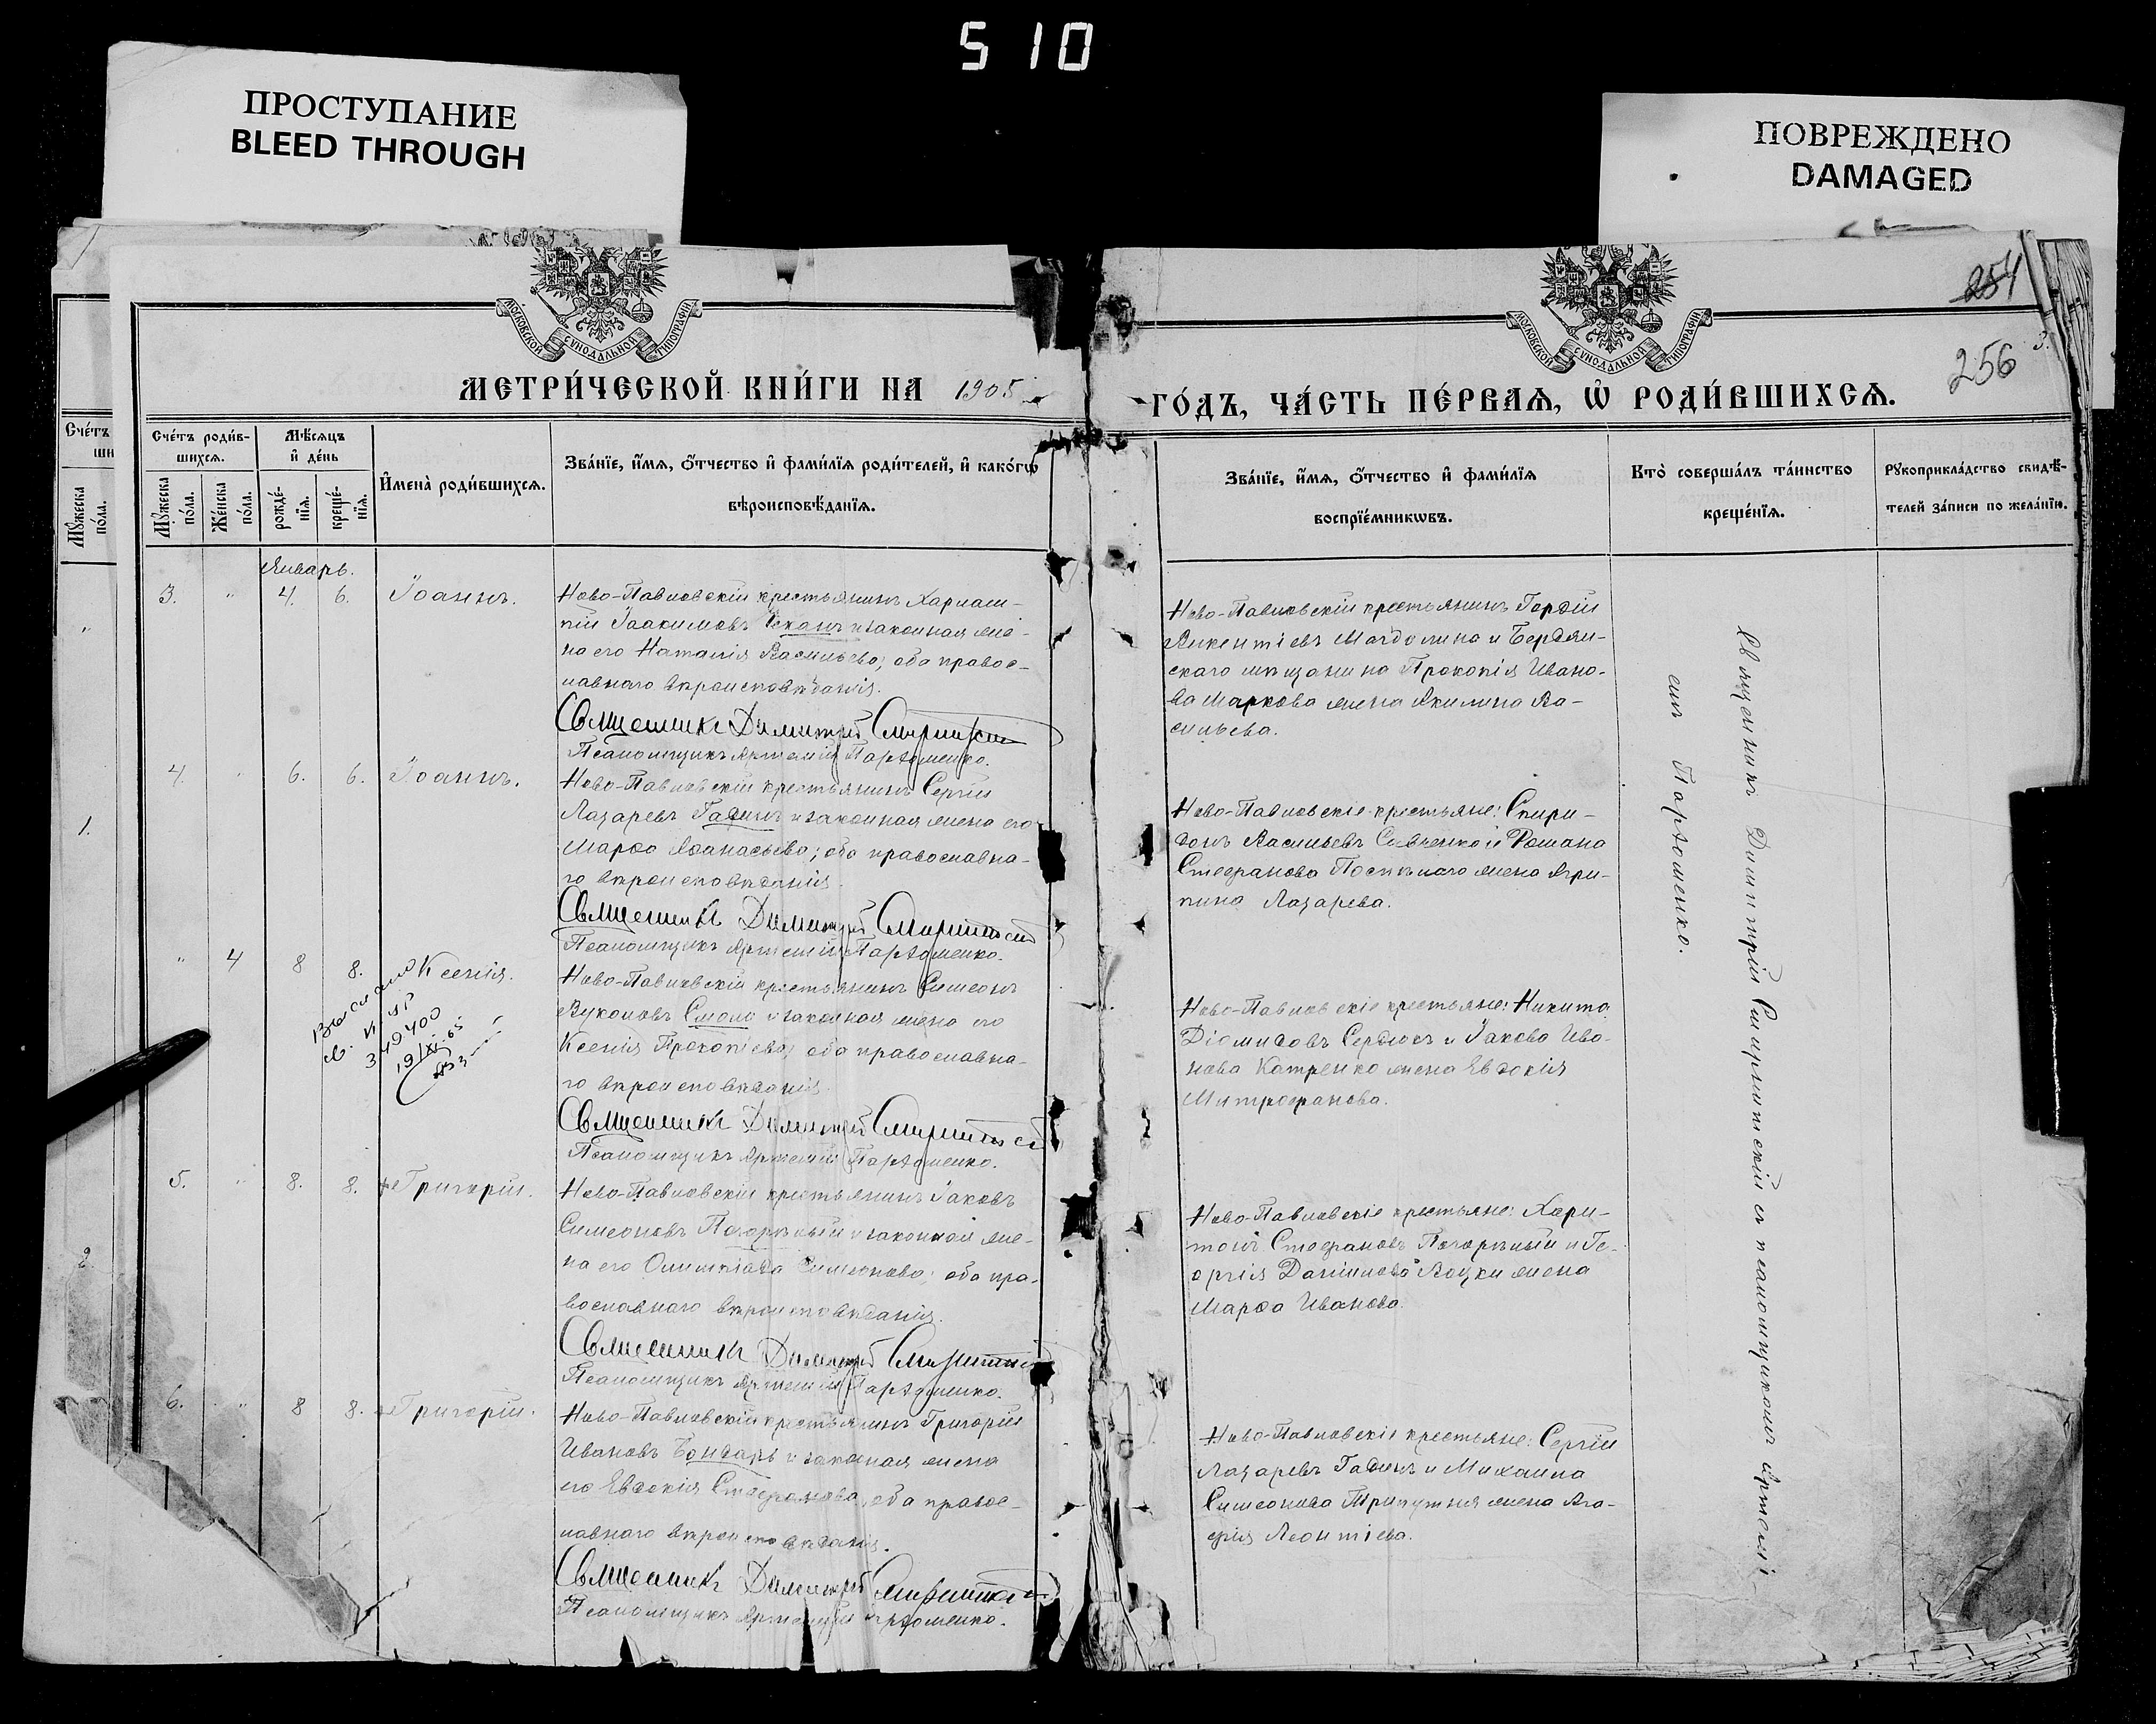 510
ПРОСТУПАНИЕ
BLEED THROUGH
ПОВРЕЖДЕНО
DAMAGED
254
256
3.
МОСКОВСКОЙ СѴНОДАЛЬНОЙ ТИПОГРАФІИ
МОСКОВСКОЙ СѴНОДАЛЬНОЙ ТИПОГРАФІИ
МЕТРИ́ЧЕСКОЙ КНИ́ГИ НА 1905
ГО́ДЪ, ЧА́СТЬ ПЕ́РВАѦ, Ѡ҆ РОДИ́ВШИХСѦ.
Сче́тъ
ши
Мꙋ́жеска по́ла.
1.
2.
Сче́тъ роди́в-
шихсѧ.
Мꙋ́жеска по́ла.
Же́нска по́ла.
Мѣ́сѧцъ
и҆ де́нь
рожде́нїѧ.
креще́нїѧ.
И҆мена̀ роди́вшихсѧ.
Зва́нїе, и҆́мѧ, ѻ҆́тчество и҆ фами́лїѧ роди́телей, и҆ како́гѡ
вѣроисповѣ́данїѧ.
Зва́нїе, и҆́мѧ, ѻ҆́тчество и҆ фами́лїѧ
воспрїе́мникѡвъ.
Кто̀ соверша́лъ та́инство
креще́нїѧ.
Рꙋкоприкла́дство свидѣ́-
телей за́писи по жела́нїю.
Январь.
3. " 4. 6. Іоаннъ.
Ново-Павловскій крестьянинъ Харлам-
пій Іоакимовъ и законная же-
на его Наталія Васильева; оба правос-
лавного вѣроисповѣданія.
Священникъ Димитрій
Псаломщикъ Артемій Пархоменко.
Ново-Павловскій крестьянинъ Гордій
Викентіевъ и Бердян-
скаго мѣщанина Прокопія Ивано-
ва Маркова жена Акилина Ва-
сильева.
4. " 6. 6. Іоаннъ.
Ново-Павловскій крестьянинъ Сергій
Лазаревъ Гадинъ и законная жена его
Марѳа Аѳанасьева; оба православна-
го вѣроисповѣданія.
Священникъ Димитрій
Псаломщикъ Артемій Пархоменко.
Ново-Павловскіе крестьяне: Спири-
донъ Васильевъ и Романа
Стефанова жена Агри-
пина Лазарева.
" 4 8 8. Ксенія.
Выслано
340400
19/XI-65
Ново-Павловскій крестьянинъ Симеонъ
Вуколовъ и законная жена его
Ксенія Прокопіева; оба православна-
го вѣроисповѣданія.
Священникъ Димитрій
Псаломщикъ Артемій Пархоменко.
Ново-Павловскіе крестьяне: Никита
Діомидовъ Сердюкъ и Іакова Ива-
нова Катренко жена Евдокія
Митрофанова.
5. " 8. 8. Григорій.
Ново-Павловскій крестьянинъ Іаковъ
Симеоновъ Погорѣлый и законная же-
на его Олимпіада Симеонова; оба пра-
вославного вѣроисповѣданія.
Священникъ Димитрій
Псаломщикъ Артемій Пархоменко.
Ново-Павловскіе крестьяне: Хари-
тонъ Стефановъ Погорѣлый и Ге-
оргія Даніилова жена
Марѳа Иванова.
6. " 8 8. Григорій.
Ново-Павловскій крестьянинъ Григорій
Ивановъ Бондарь и законная жена
его Евдокія Стефанова, оба правос-
лавного вѣроисповѣданія.
Священникъ Димитрій
Псаломщикъ Артемій Пархоменко.
Ново-Павловскіе крестьяне: Сергій
Лазаревъ Гадинъ и Михаила
Симеонова жена Ага-
фія Леонтіева.
Священникъ Димитрій съ псаломщикомъ Артемі-
емъ Пархоменко.